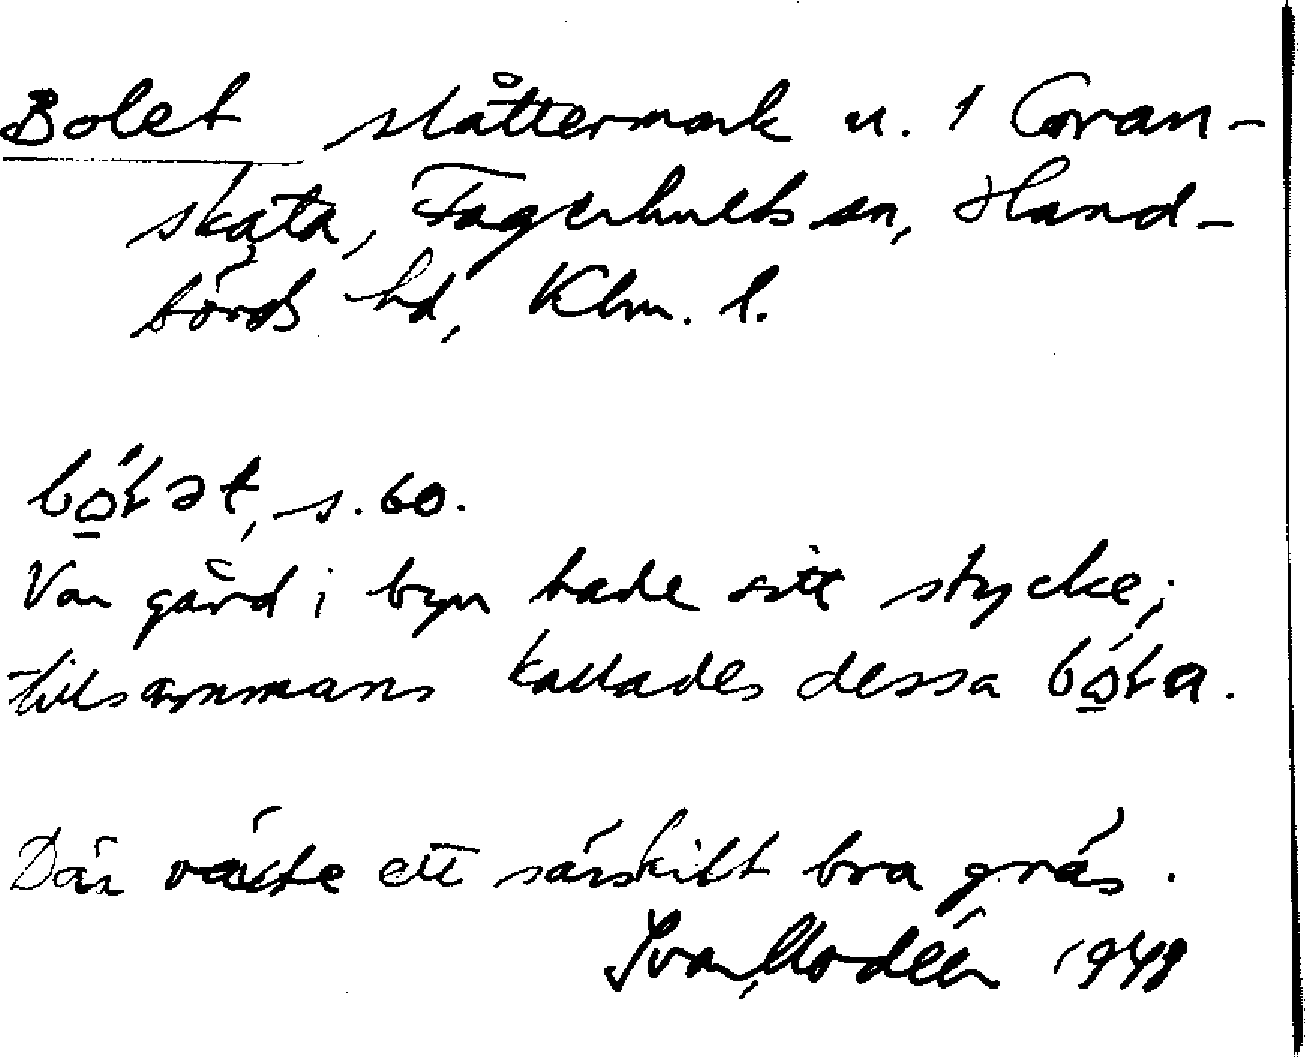 Bolet slåttermark u. 1 Gran-
skata, Fagerhults sn, Hand-
börds hd, Klm. l.
bo̲´lət, s. 60.
Var gård i byn hade sitt stycke;
tillsammans kallades dessa bo̲´la.
Där växte ett särskilt bra gräs.
Ivar Modéer 1948